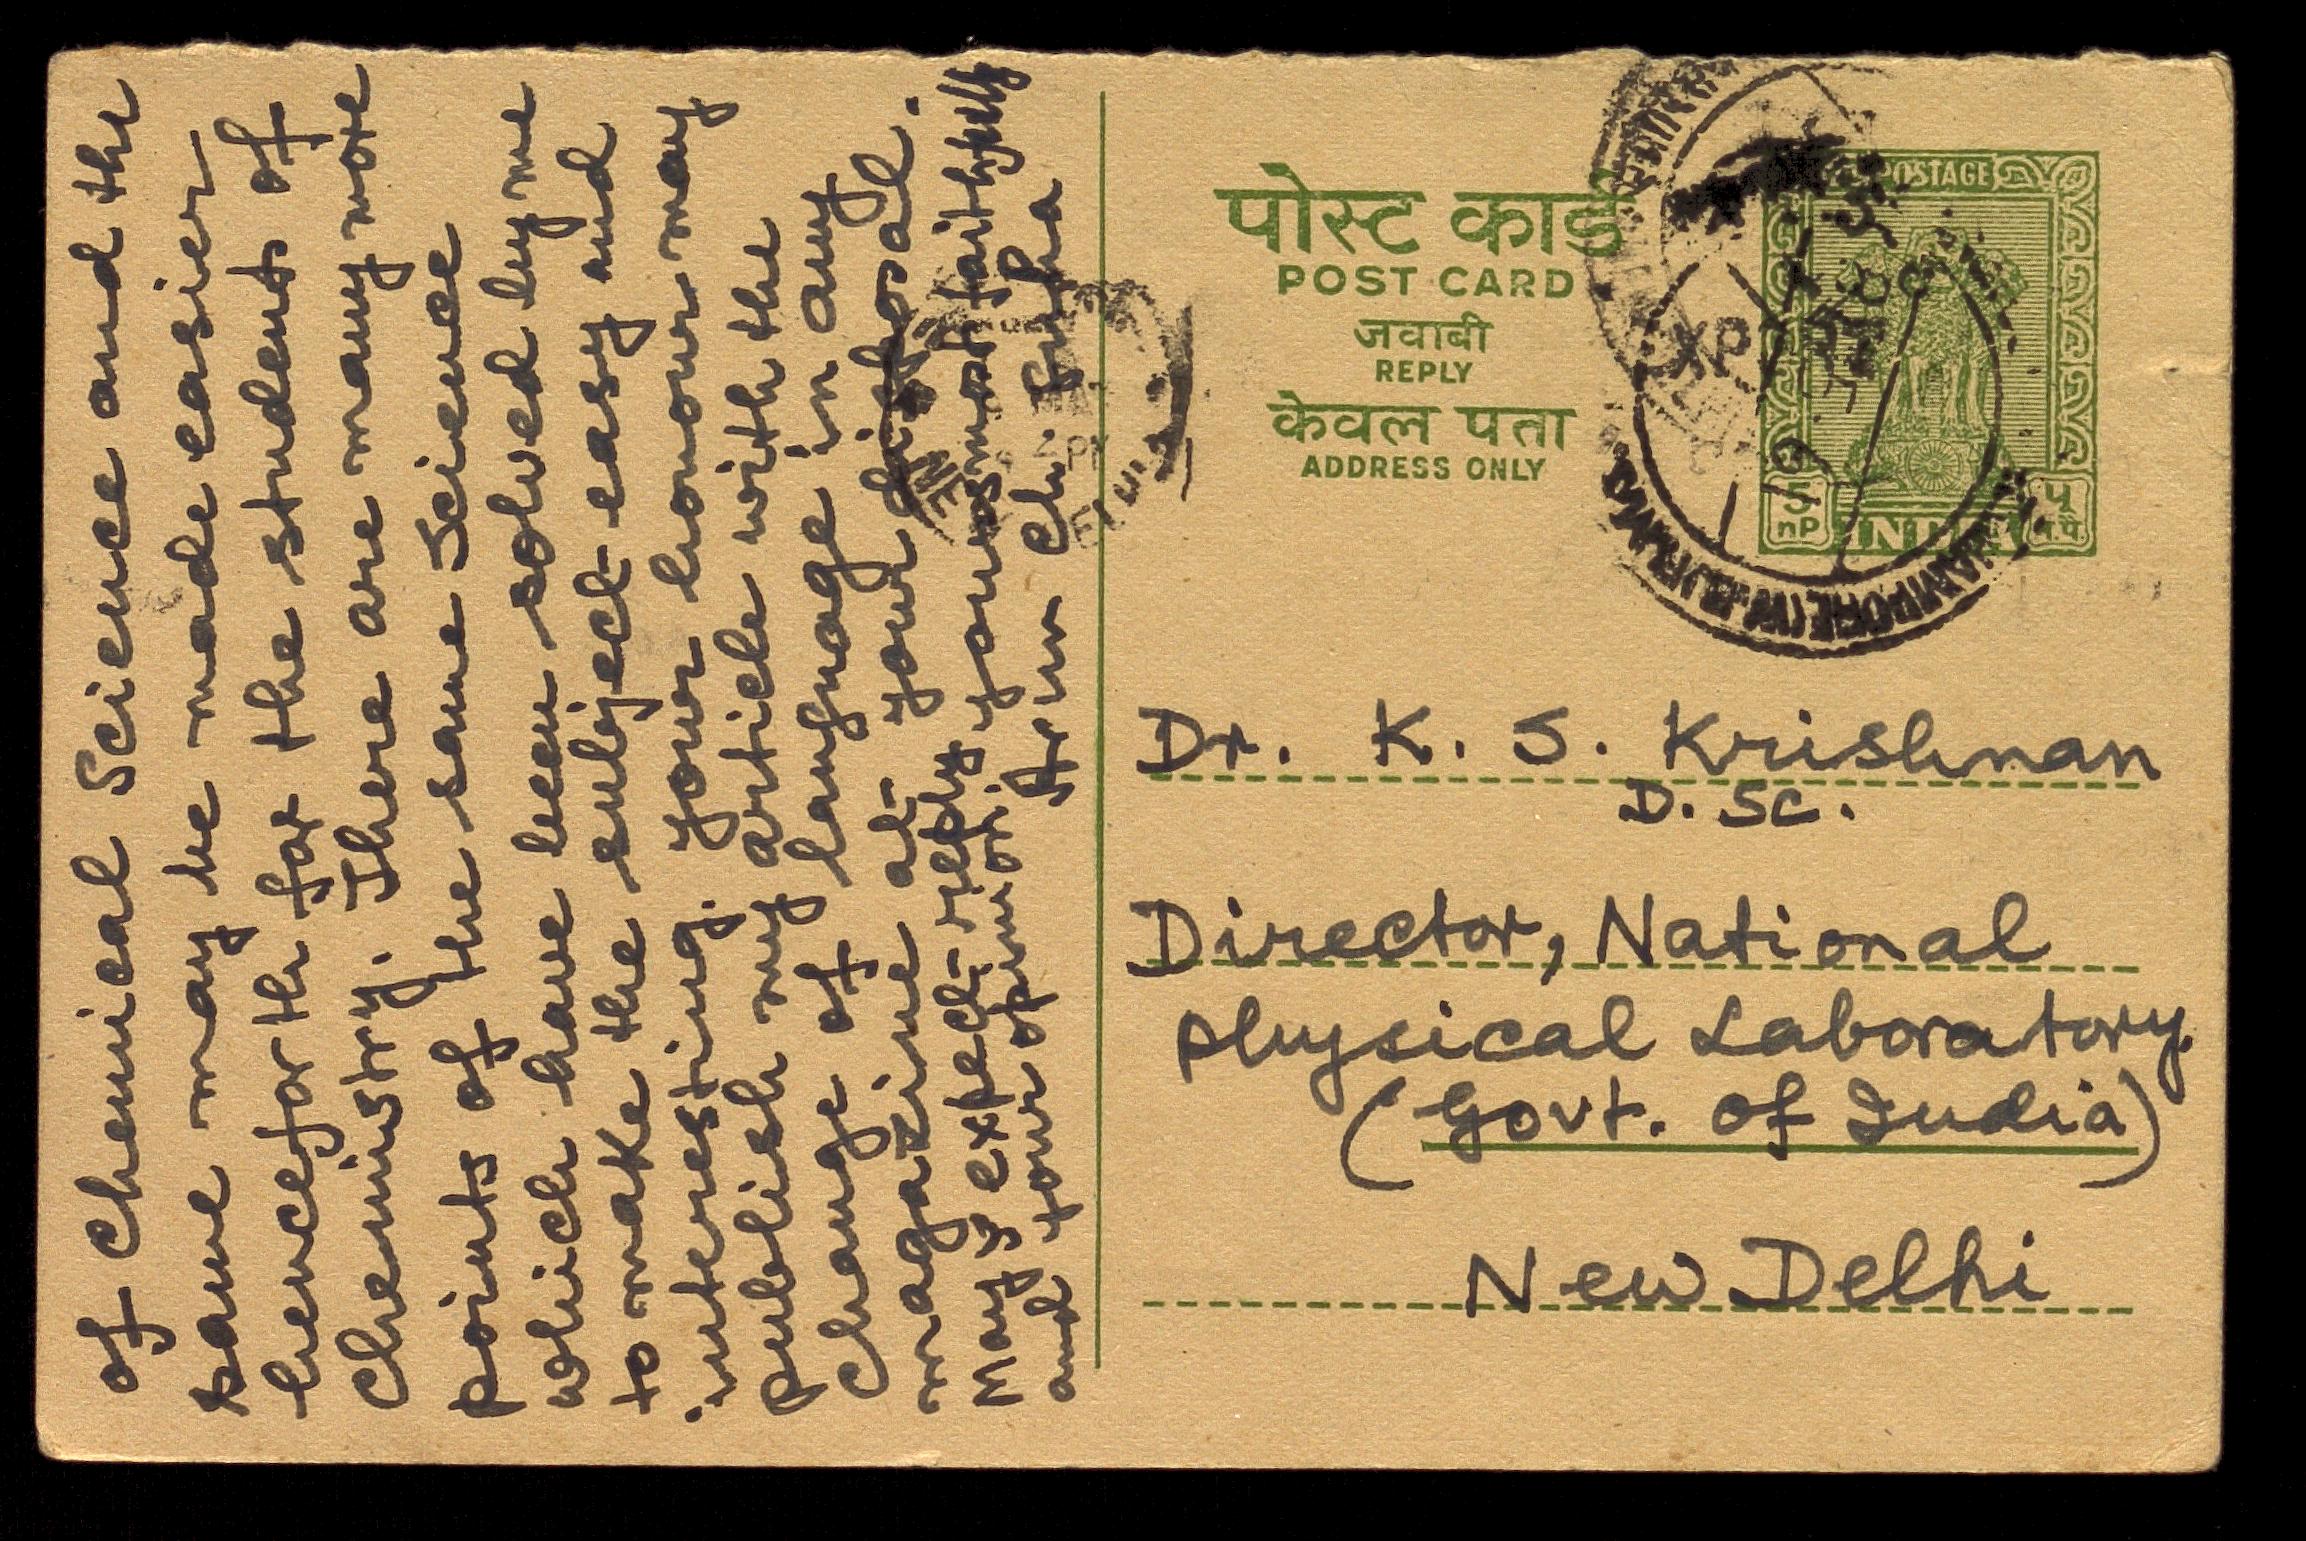 of Chemical Science and the
same may be made easier
henceforth for the students of
Chemistry. There are many more
points of the same Science
which have been solved by me
to make the subject easy and
interesting. your honour may
publish my article with the
change of language in any
magazine at your disposal.
May I expect reply
and your opinion.
yours most faithfully
Arun Ch. Guha
पोस्ट कार्ड
POST CARD
जवाबी
REPLY
केवल पता
ADDRESS ONLY
POSTAGE
5 nP
INDIA
५ न.पै.
Dr. K. S. Krishnan
D. Sc.
Director, National
Physical Laboratory
(Govt. of India)
New Delhi